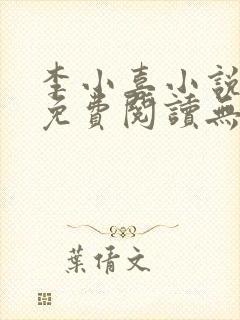 李小嘉小說
免費閱讀無
葉倩文